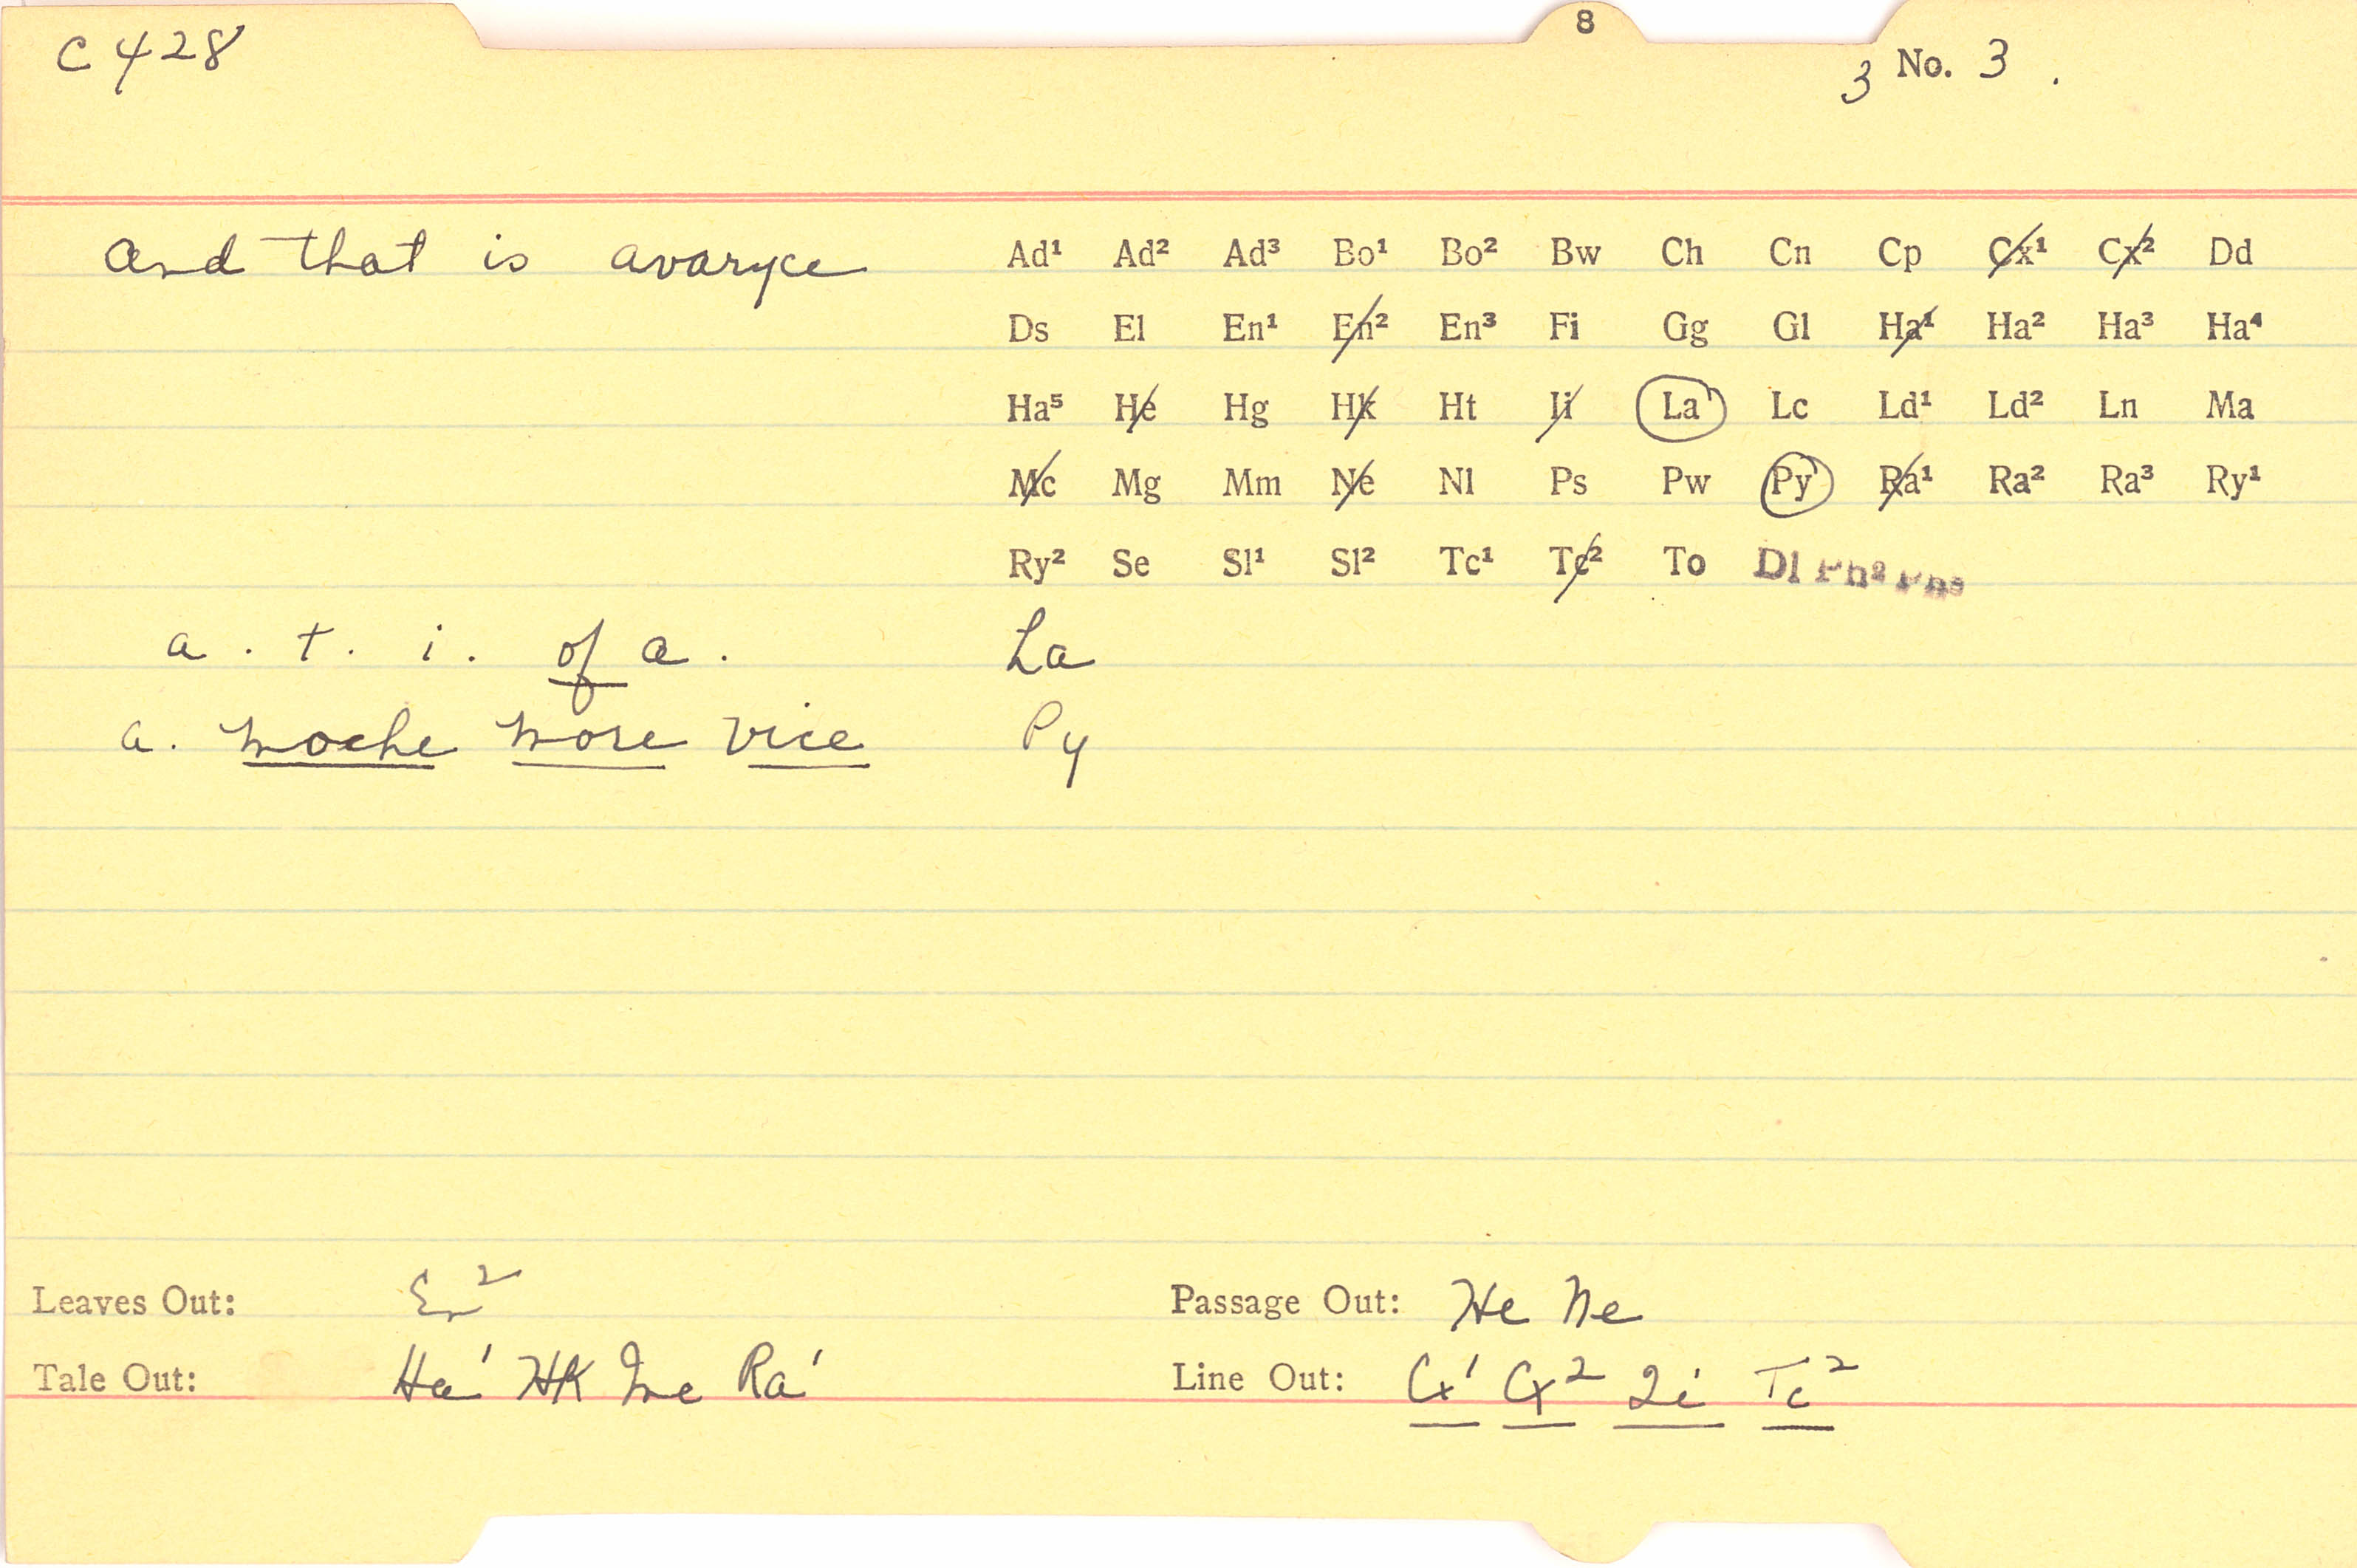 8
C 428
3 No. 3 .
and that is avaryce
Ad¹ Ad² Ad³ Bo¹ Bo² Bw Ch Cn Cp Cx¹ Cx² Dd
Ds El En¹ En² En³ Fi Gg Gl Ha¹ Ha² Ha³ Ha⁴
Ha⁵ He Hg Hk Ht Ii La Lc Ld¹ Ld² Ln Ma
Mc Mg Mm Ne Nl Ps Pw Py Ra¹ Ra² Ra³ Ry¹
Ry² Se Sl¹ Sl² Tc¹ Tc² To Dl Ph² Ph³
a . t . i . of a . La
a . moche more vice Py
Leaves Out: En² Passage Out: He Ne
Tale Out: Ha¹ Hk Mc Ra¹ Line Out: Cx¹ Cx² Ii Tc²